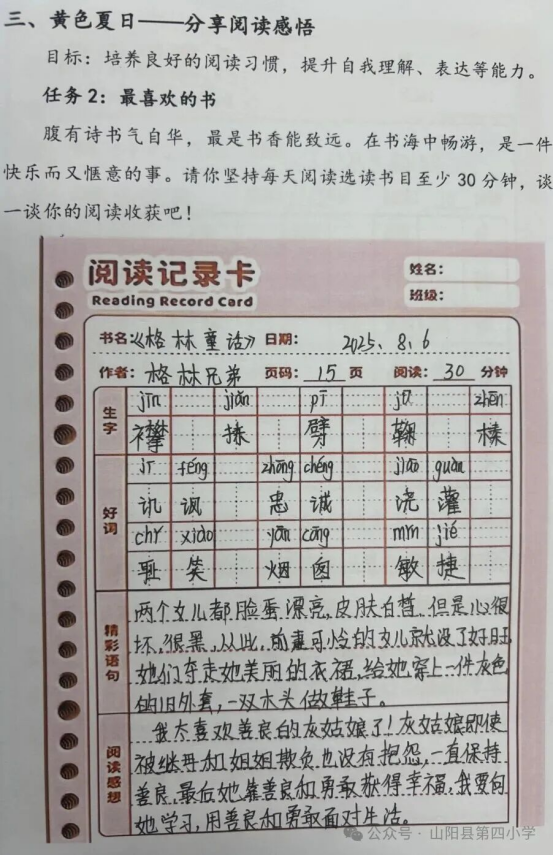 三、黄色夏日——分享阅读感悟
目标：培养良好的阅读习惯，提升自我理解、表达等能力。
任务2：最喜欢的书
腹有诗书气自华，最是书香能致远。在书海中畅游，是一件
快乐而又惬意的事。请你坚持每天阅读选读书目至少30分钟，谈
一谈你的阅读收获吧！
阅读记录卡 姓名：
Reading Record Card 班级：
书名：《格林童话》 日期： 2025、8、6
作者：格林兄弟 页码：15页 阅读：30分钟
生字
jīn jiǎn pī jū zhēn
襟 拣 劈 鞠 榛
好词
jī fěng zhōng chéng jiāo guàn
讥讽 忠诚 浇灌
chǐ xiào yān cōng mǐn jié
耻笑 烟囱 敏捷
精彩语句
两个女儿都脸蛋漂亮，皮肤白皙，但是心很
坏，很黑，从此，前妻可怜的女儿就没了好日子，
她们夺走她美丽的衣裙，给她穿上一件灰色
的旧外套，一双木头做鞋子。
阅读感想
我太喜欢善良的灰姑娘了！灰姑娘即使
被继母和姐姐欺负也没有抱怨，一直保持
善良，最后她靠善良和勇敢获得幸福，我要向
她学习，用善良和勇敢面对生活。
公众号·山阳县第四小学